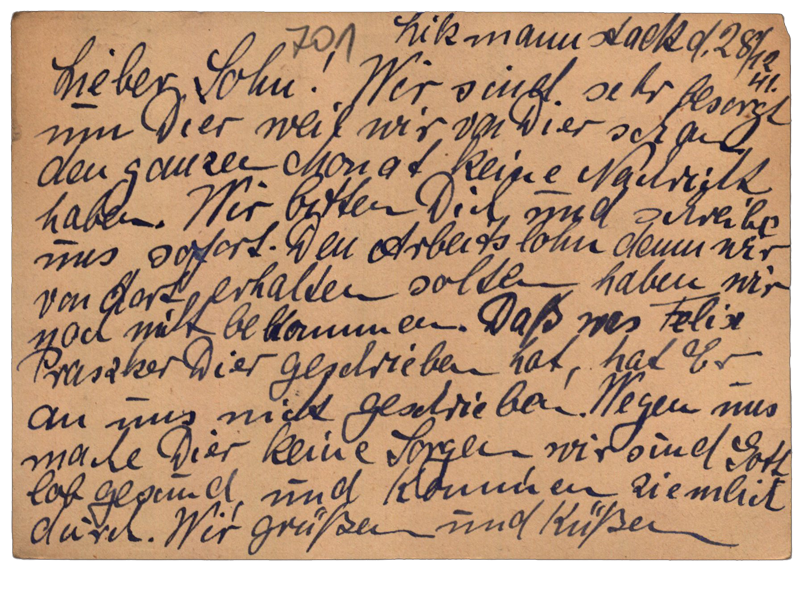 701
Likmannstadt d. 28/12 41.
Lieber Sohn! Wir sind sehr besorgt
um Dier weil wir von Dier schon
den ganzen Monat keine Nachricht
haben. Wir bitten Dich und schreibe
uns sofort. Den Arbeitslohn denn wir
von dort erhalten solten haben wir
noch nicht bekommen. Daß was Felix
Praszker Dier geschrieben hat, hat Er
an uns nicht geschrieben. Wegen uns
mache Dier keine Sorgen wir sind Gott
lob gesund, und kommen ziemlich
durch. Wir grüßen und Küßen